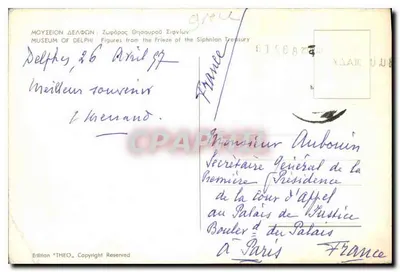 ΜΟΥΣΕΙΟΝ ΔΕΛΦΩΝ. Ζωφόρος Θησαυρού Σιφνίων
MUSEUM OF DELPHI. Figures from the frieze of the Siphnian Treasury
Delphes, 26 Avril 97
Meilleur souvenir
France
Monsieur Aubouin
Secrétaire Général de la
Première Présidence
de la Cour d'Appel
au Palais de Justice
Boulevd du Palais
à Paris France
Edition "THEO", Copyright Reserved
CARTORUM